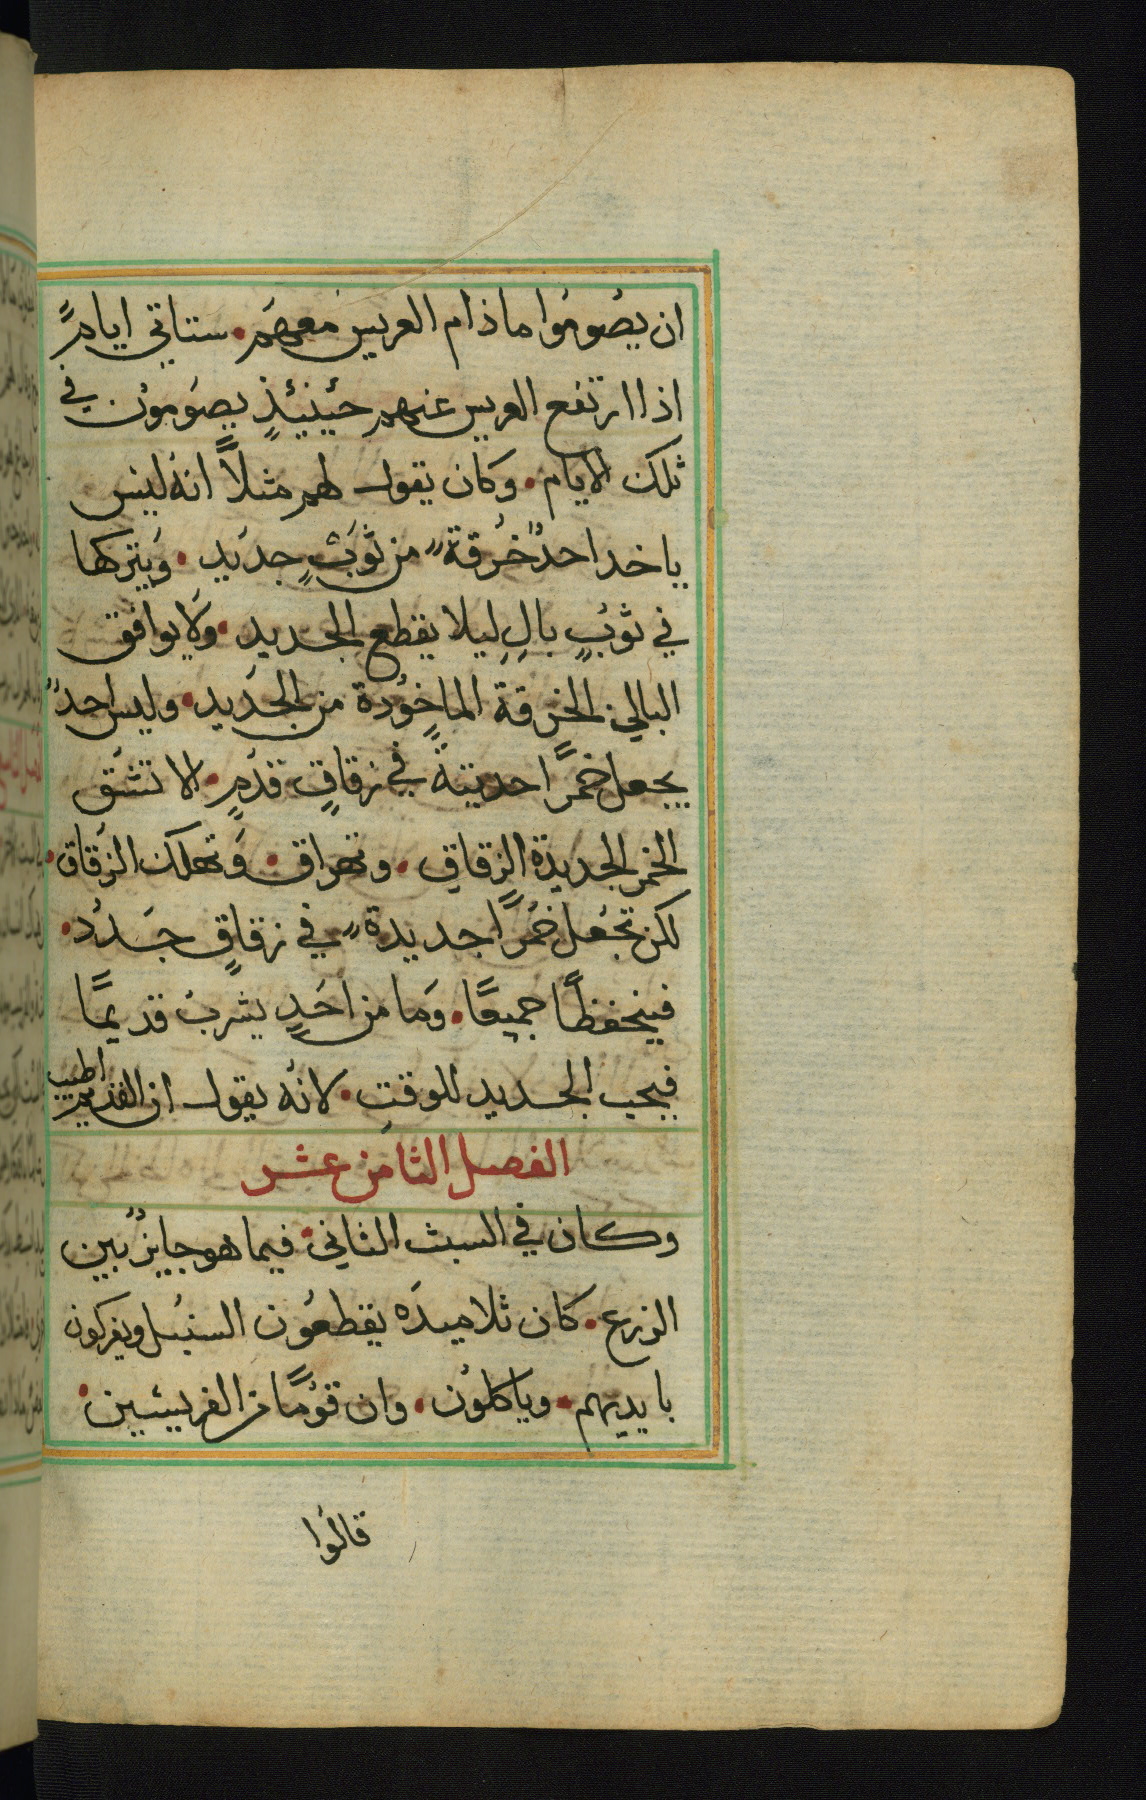 ان يصُومُوا ماذام العريس معهم. ستاتي ايامٌ
اذا ارتفع العريس عنهم حينيئذٍ يصَومُون في
ثلك الايام. وكان يقول لهم مثلاً انه ليس
ياخد احدٌ خرقةً من ثوبٍ جديد. ويتركها
في ثوبٍ بالٍ ليلا يقطع الجديد. ولا يوافق
البالي الخرقة الماخوُدة من الجديد. وليس احدٌ
يجعل خمرًا حديثةً في زقاقٍ قدمٍ. لا تنشق
الخمر الجديدة الزقاق. وتهراق. وتهلك الزقاق.
لكن تجعل خمرًا جديدةً في زقاقٍ جدد.
فينحفظًا جميعًا. وما من احدٍ يشرب قديمًا
فيحب الجديد للوقتِ. لانه يقول ان القديم اطيب
الفصل الثامن عشر
وكان في السبث الثاني. فيما هو جايزٌ بين
الزرع. كان ثلاميده يقطعُون السنبل ويفركون
بايديهم. وياكلون. وان قومًا من الفريسيين.
قالوُا